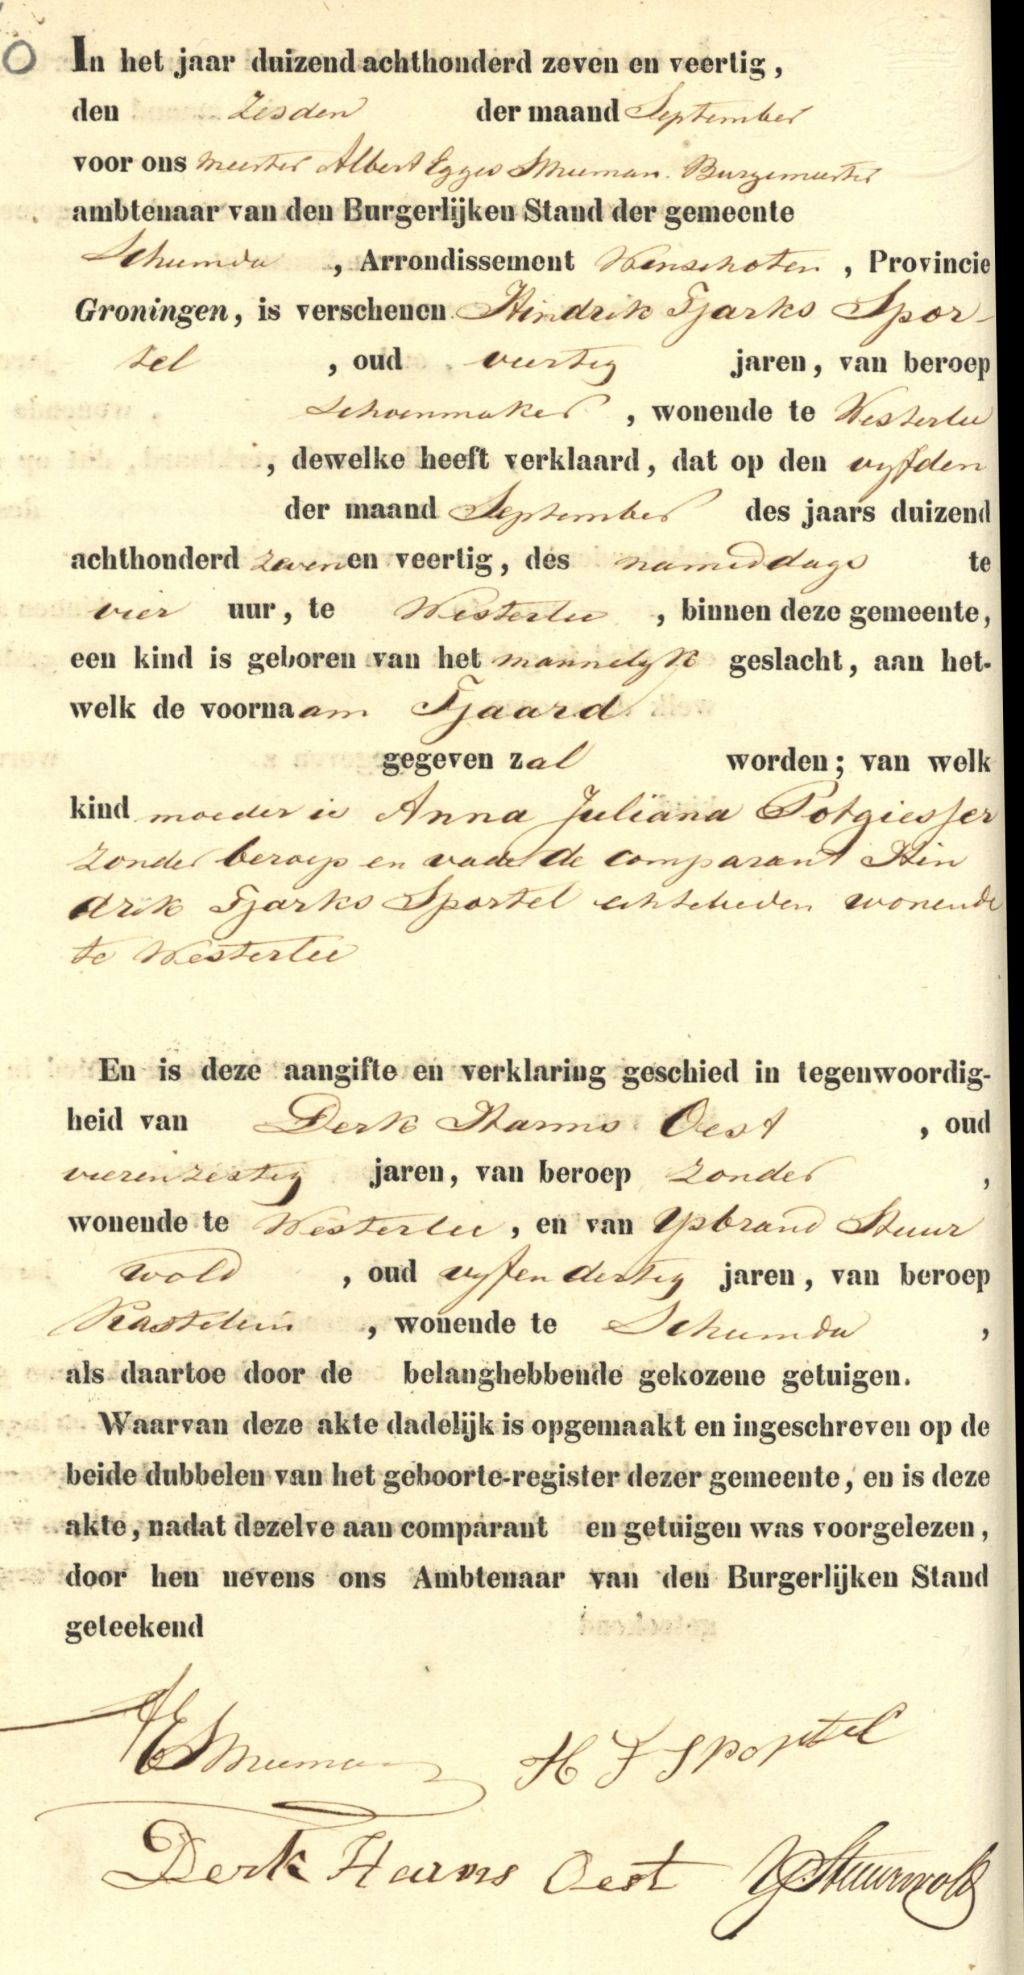 In het jaar duizend achthonderd zeven en veertig,
den zesden der maand September
voor ons meester Albert Egges Smeeman Burgemeester
ambtenaar van den Burgerlijken Stand der gemeente
Scheemda, Arrondissement Winschoten, Provincie
Groningen, is verschenen Hindrik Tjarks Spor-
tel, oud veertig jaren, van beroep
schoenmaker, wonende te Westerlee
, dewelke heeft verklaard, dat op den vyfden
der maand September des jaars duizend
achthonderd zeven en veertig, des namiddags te
vier uur, te Westerlee, binnen deze gemeente,
een kind is geboren van het mannelyk geslacht, aan het-
welk de voornaam Tjaard
gegeven zal worden; van welk
kind moeder is Anna Juliana Potgiesser
zonder beroep en vader de comparant Hin
drik Tjarks Sportel echtelieden wonende
te Westerlee
En is deze aangifte en verklaring geschied in tegenwoordig-
heid van Derk Harms Oest, oud
vierenzestig jaren, van beroep zonder,
wonende te Westerlee, en van Ypbrand Stuur
wold, oud vyfendertig jaren, van beroep
Kastelein, wonende te Scheemda,
als daartoe door de belanghebbende gekozene getuigen.
Waarvan deze akte dadelijk is opgemaakt en ingeschreven op de
beide dubbelen van het geboorte-register dezer gemeente, en is deze
akte, nadat dezelve aan comparant en getuigen was voorgelezen,
door hen nevens ons Ambtenaar van den Burgerlijken Stand
geteekend
H T Sportel
Derk Harms Oest Y Stuurwold